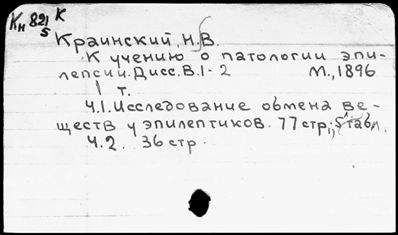 Кн 821 К
5
Краинский, Н.В.
К учению о патологии эпи-
лепсии. Дисс. В. 1-2 М., 1896
1 т.
Ч.1. Исследование обмена ве-
ществ у эпилептиков. 77 стр., 5 табл.
Ч.2. 36 стр.